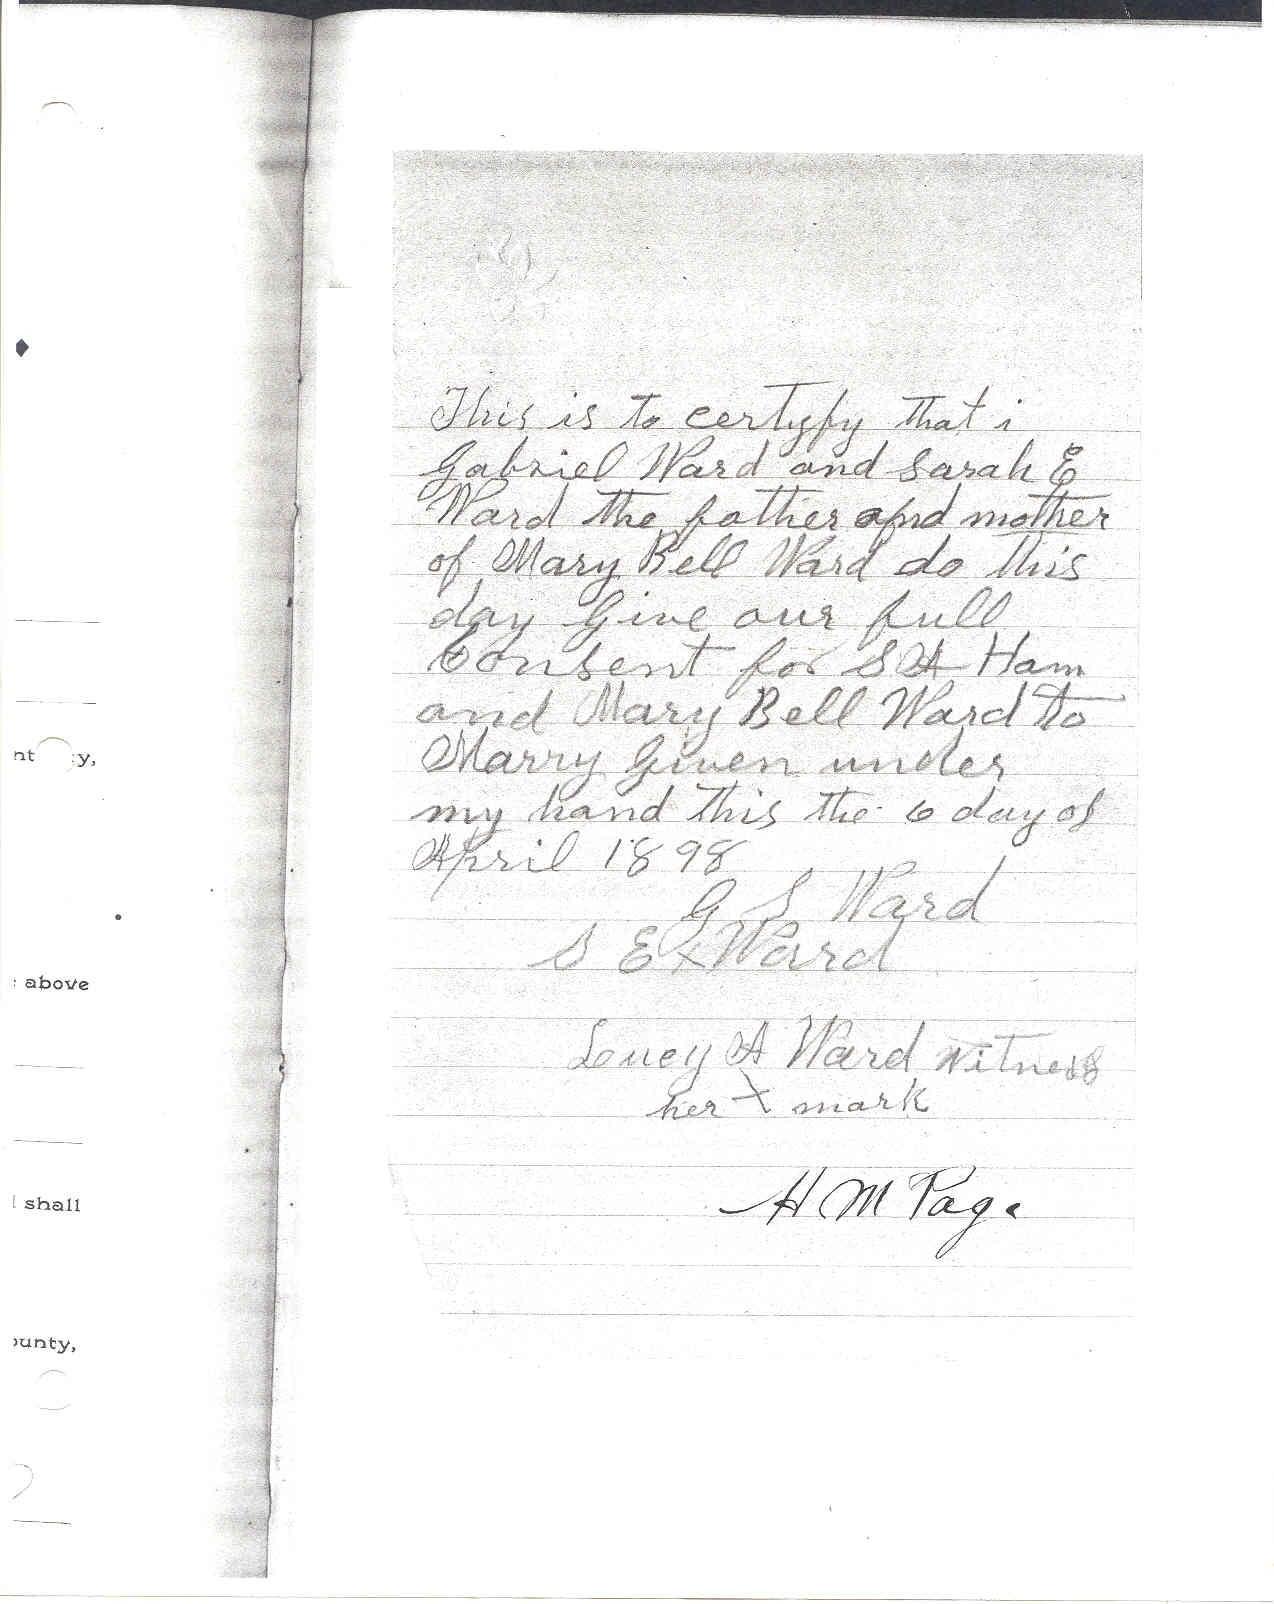 nt y,
above
shall
ounty,
This is to certyfy that i
Gabriel Ward and Sarah E
Ward the father and mother
of Mary Bell Ward do this
day Give our full
Consent for S A Ham
and Mary Bell Ward to
Marry Given under
my hand this the 6 day of
April 1898
G S Ward
S E x Ward
Loucy A Ward Witness
her X mark
H M Page